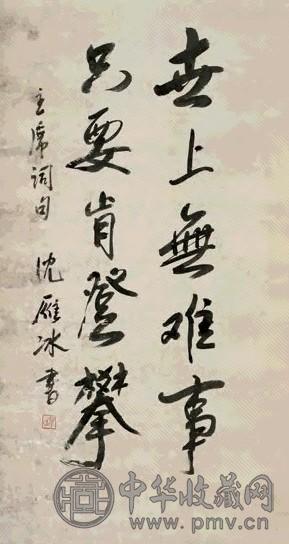 世上無难事
只要肯登攀
主席词句 沈雁冰書
中华收藏网
www.pmv.cn